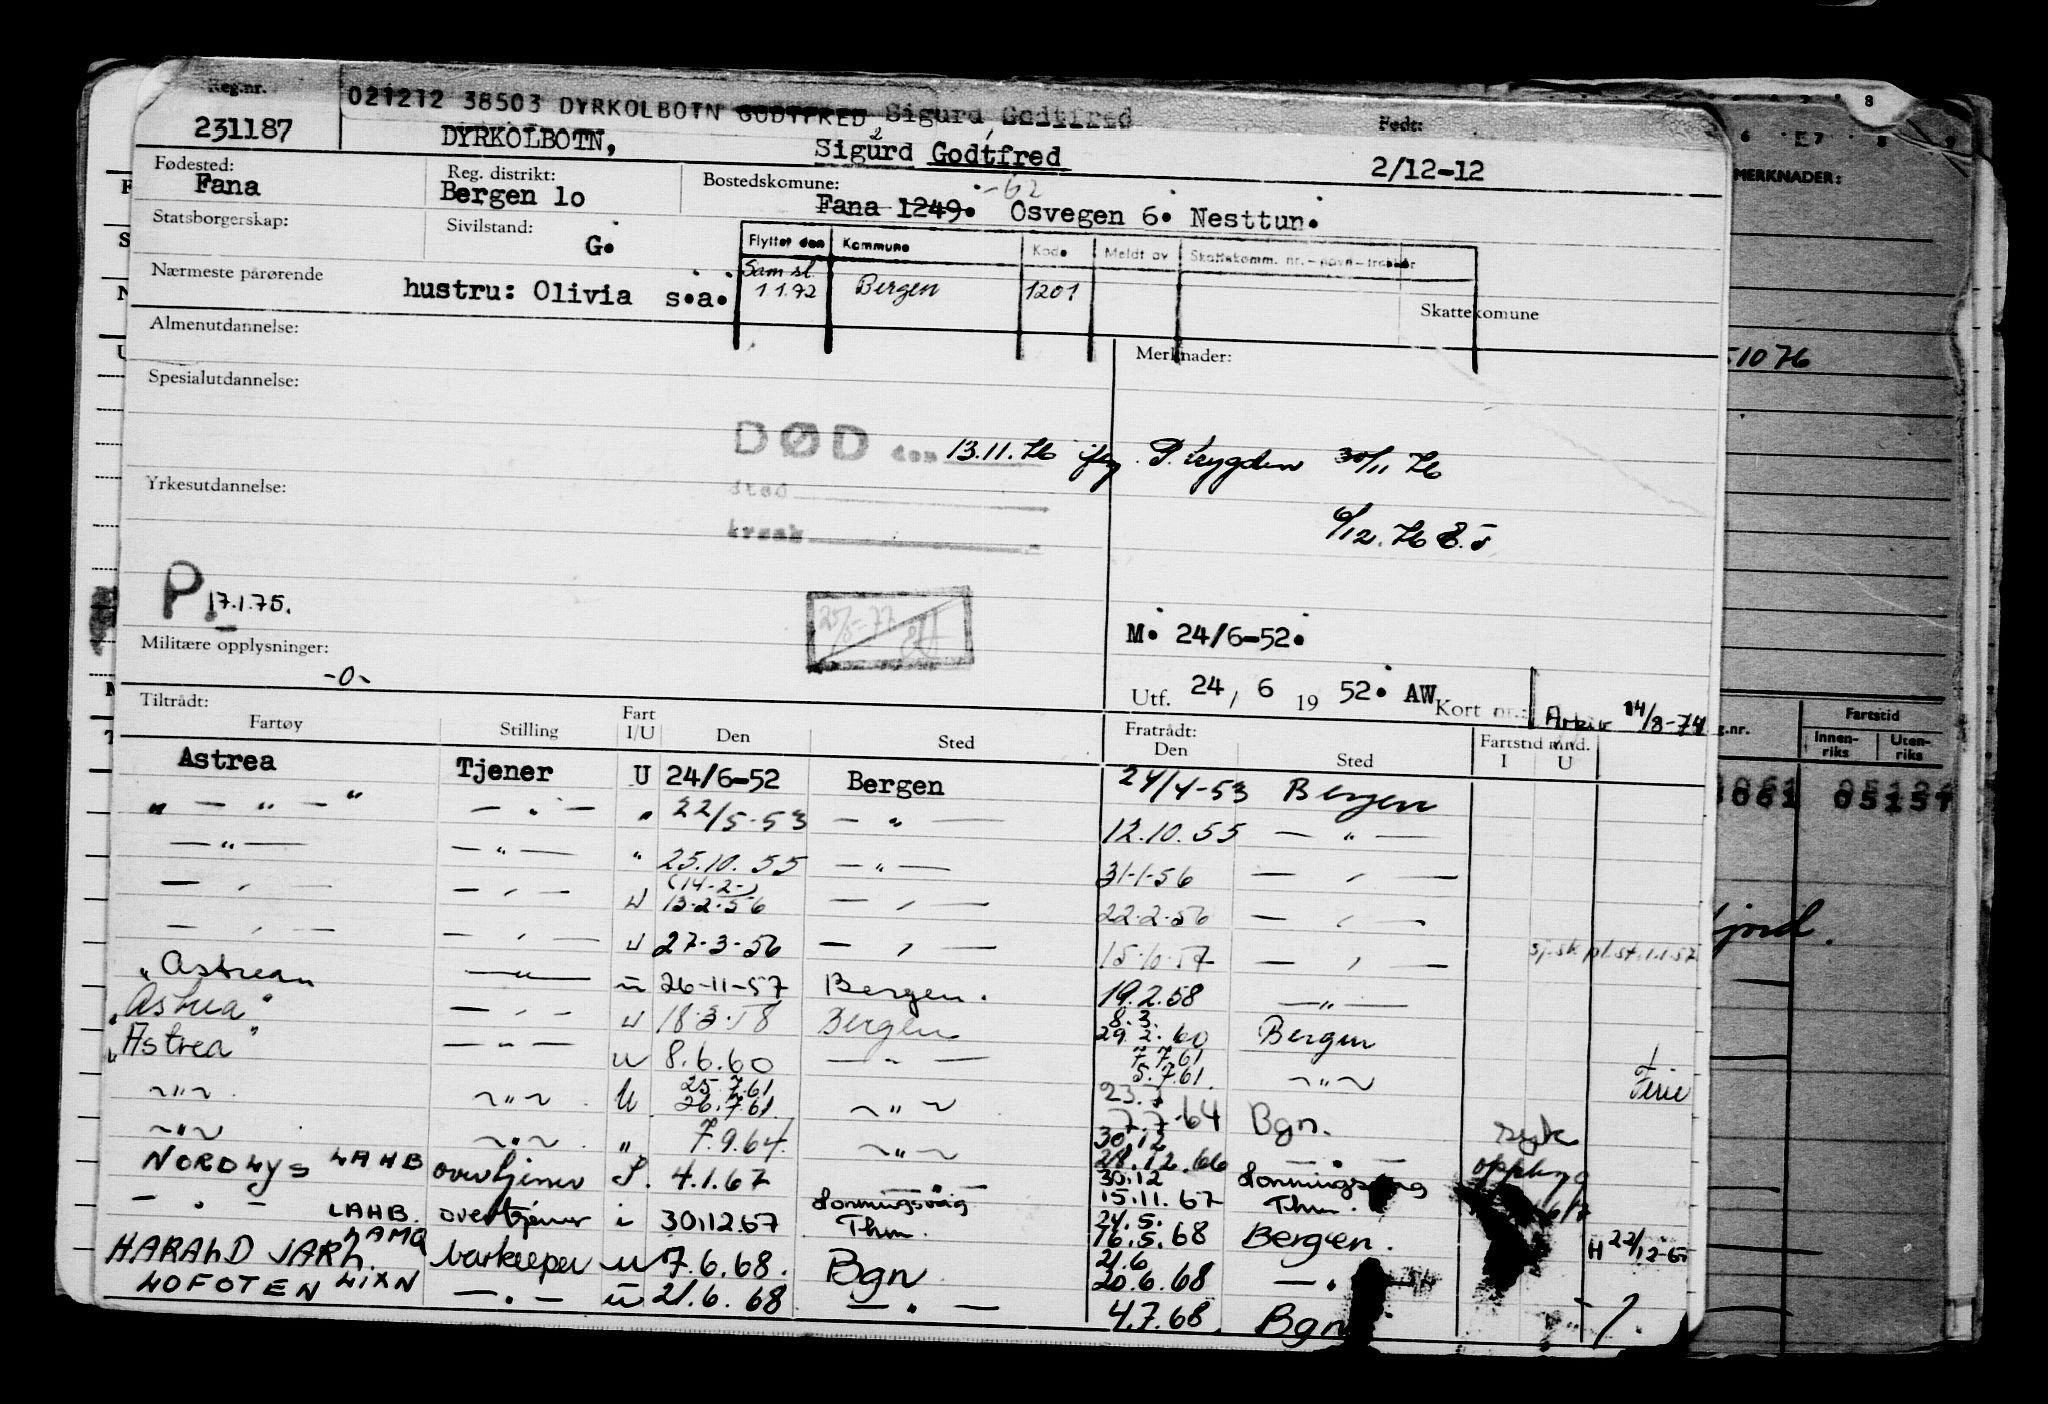 Reg.nr.
231187
021212 38503 DYRKOLBOTN GODTFRED Sigurd Godtfred
DYRKOLBOTN, Sigurd Godtfred
2 1
Født:
2/12-12
Fødested:
Fana
Reg. distrikt:
Bergen lo
Bostedskomune:
-62
Fana 1249. Osvegen 6. Nesttun.
Statsborgerskap:
Sivilstand:
G.
Flyttet den Kommune Kode Meldt av Skattekomm. nr.
Sam sl.
1 1.72 Bergen 1201
Nærmeste pårørende
hustru: Olivia s.a.
Skattekomune
Almenutdannelse:
Merknader:
Spesialutdannelse:
DØD den 13.11.76 30/11 76
sted
årsak
6/12.76
Yrkesutdannelse:
P 17.1.75.
25/5-77
M. 24/6-52.
Militære opplysninger:
-0-
Utf. 24, 6 19 52. AW Kort nr.: Arkiv 14/8-74
Tiltrådt:
Fartøy Stilling Fart I/U Den Sted
Fratrådt:
Den Sted Fartstid mnd. I U
Astrea Tjener U 24/6-52 Bergen 24/4-53 Bergen
" — " — " — " — " 22/5-53 — " — 12.10.55 — " —
— " — — " — " 25.10.55 — " — 31-1-56 — " —
(14-2-)
— " — — " — U 13.2.56 — " — 22.2.56 — " —
— " — — " — U 27-3-56 — " — 15-10-57 — " — sj.sk pl.st. 1.1.57
"Astrea" — " — u 26-11-57 Bergen. 19.2.58 — " —
8.3.
"Astrea" — " — U 18.3.58 Bergen 29.2.60 Bergen
7.7.61
"Astrea" — " — u 8.6.60 — " — 5.7.61. — " — Ferie
25.7.61 23.7
— " — — " — U 26.7.61 — " — 7.7-64 Bgn. syk
30.12
— " — — " — " 7.9.64 — " — 28.12.66 — " —
30.12
NORDLYS LAHB overtjener I. 4.1.67 — " — 15.11.67 Honningsvåg Thm.
24.5.
— " — LAHB. overtjener i 30.12.67 Honningsvåg Thm. 16.5.68 Bergen. H 22/12-67
21.6
HARALD JARL. LAMQ barkeeper u 7.6.68. Bgn 20.6.68 — " —
LOFOTEN LIXN — " — u 21.6.68 — " — 4.7.68. Bgn
MERKNADER:
1076
Fartstid
Innen-riks Uten-riks